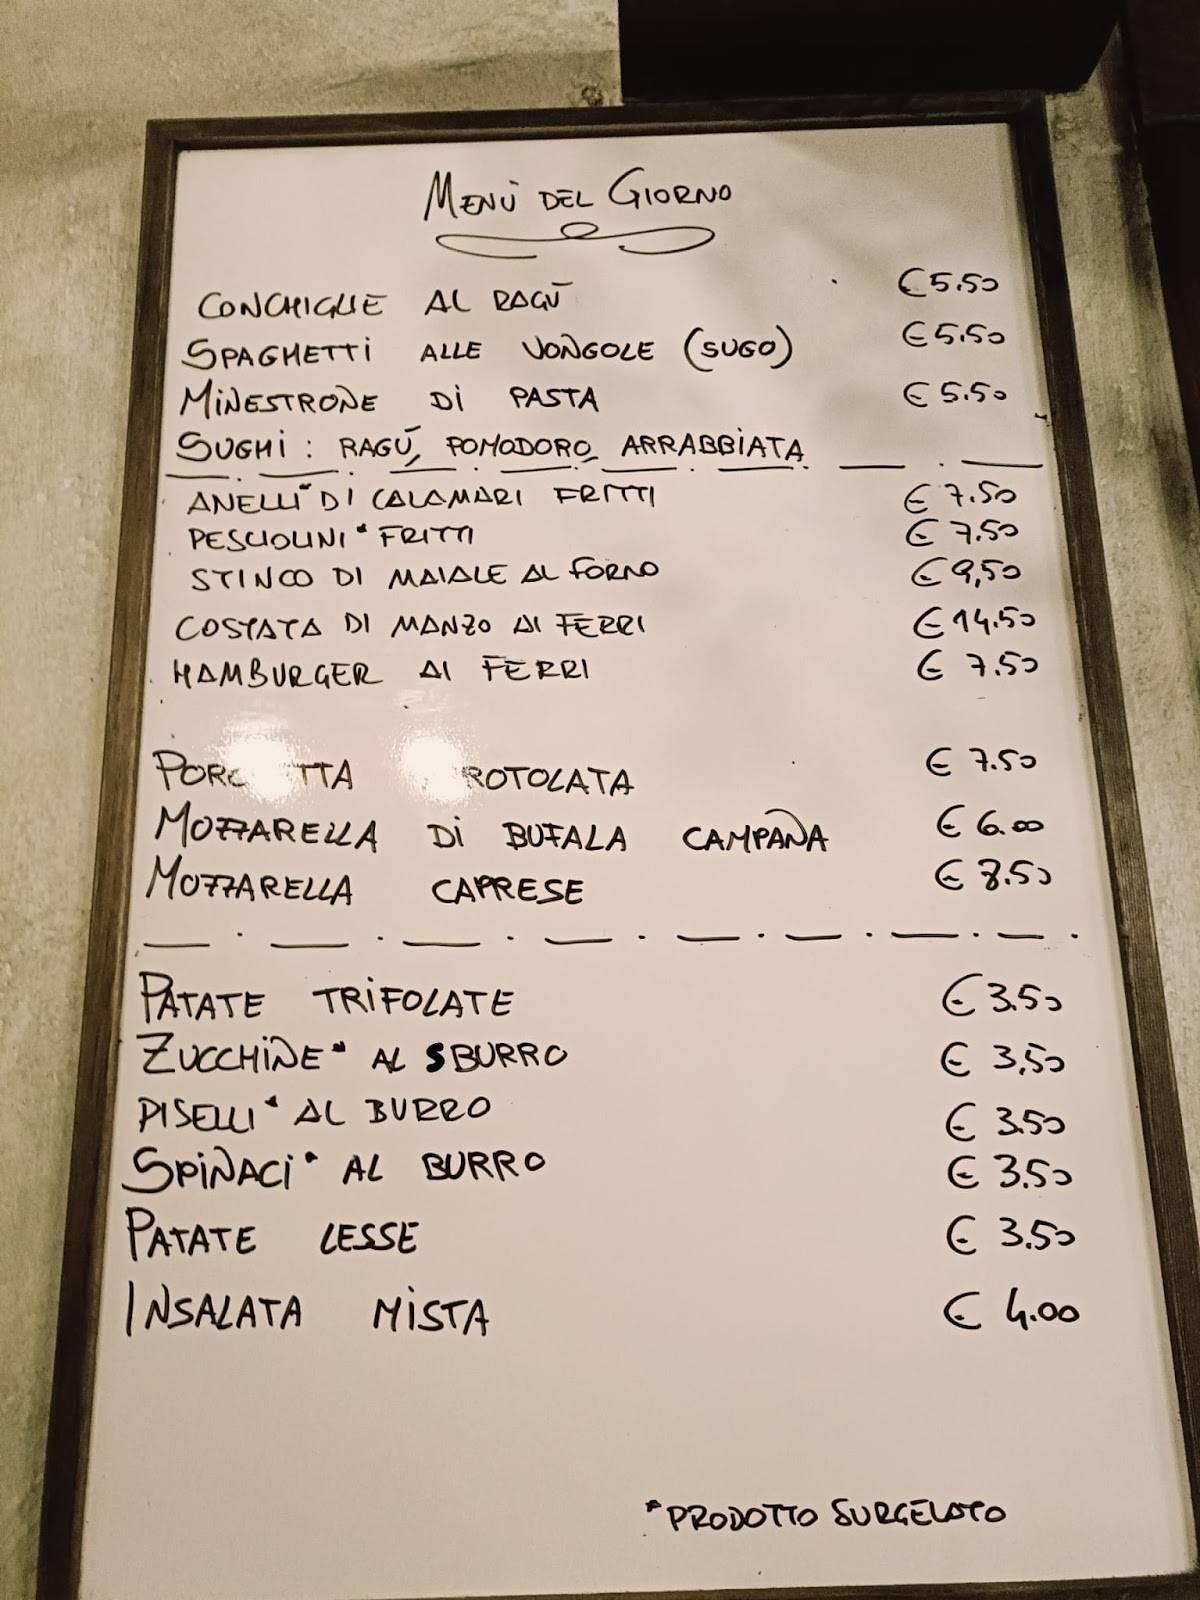 MENÙ DEL GIORNO
CONCHIGLIE AL RAGÙ € 5.50
SPAGHETTI ALLE VONGOLE (SUGO) € 5.50
MINESTRONE DI PASTA € 5.50
SUGHI: RAGÙ, POMODORO, ARRABBIATA
ANELLI* DI CALAMARI FRITTI € 7.50
PESCIOLINI* FRITTI € 7.50
STINCO DI MAIALE AL FORNO € 9,50
COSTATA DI MANZO AI FERRI € 14.50
HAMBURGER AI FERRI € 7.50
€ 7.50
MOZZARELLA DI BUFALA CAMPANA € 6.00
MOZZARELLA CAPRESE € 8.50
PATATE TRIFOLATE € 3.50
ZUCCHINE* AL SBURRO € 3,50
PISELLI* AL BURRO € 3.50
SPINACI* AL BURRO € 3.50
PATATE LESSE € 3.50
INSALATA MISTA € 4.00
*PRODOTTO SURGELATO